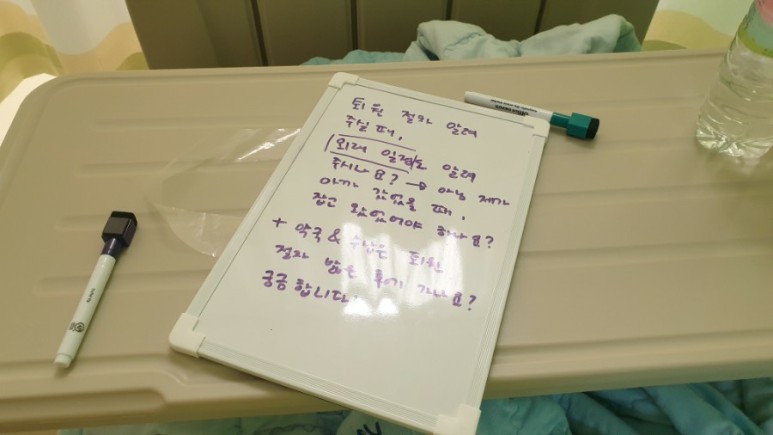 퇴원 절차 알려
주실 때,
외래 일정도 알려
주시나요? → 아님 제가
아까 갔었을 때,
잡고 왔었어야 하나요?
+ 약국 & 수납은 퇴원
절차 밟은 후에 가나요?
궁금합니다.